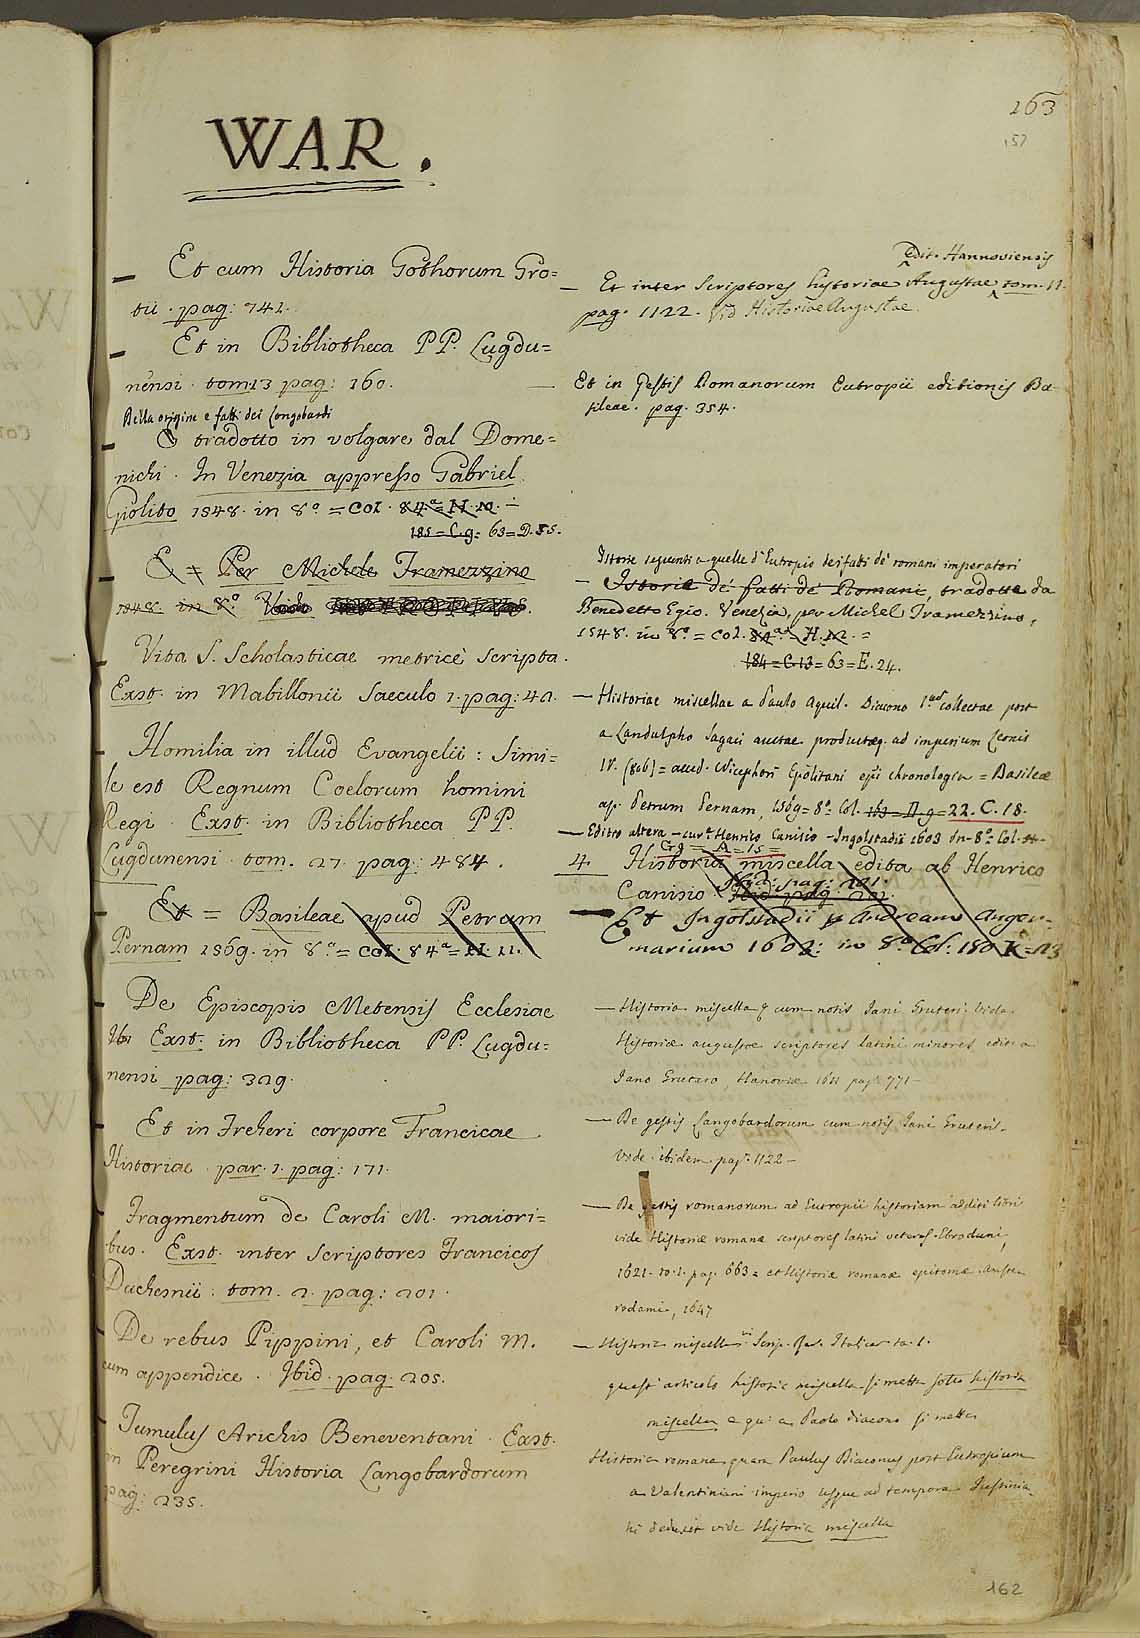 263
157
WAR.
Et cum Historia Gothorum Gro=
tii. pag: 742.
Et in Bibliotheca PP. Lugdu=
nensi. tom 13 pag: 160.
Della origine e fatti dei Longobardi
tradotto in volgare dal Dome=
nichi. In Venezia appresso Gabriel
Giolito 1548. in 8.º = Col. 84.ª = N. 10. =
185 = C. g = 63 = D. 35.
E = Per Michele Tramezzino
1548. in 8.º Vide
Vita S. Scholasticae metricè scripta.
Exst. in Mabillonii Saeculo 1. pag: 40.
Homilia in illud Evangelii: Simi=
le est Regnum Coelorum homini
Regi. Exst. in Bibliotheca PP.
Lugdunensi. tom. 27. pag: 484.
Et = Basileae apud Petrum
Pernam 1569. in 8.º = Col. 84.ª = N. 11.
De Episcopis Metensis Ecclesiae
Exst. in Bibliotheca PP. Lugdu=
nensi pag: 329.
Et in Freheri corpore Francicae
Historiae. par. 1. pag: 171.
Fragmentum de Caroli M. maiori=
bus. Exst. inter Scriptores Francicos
Duchesnii: tom. 2. pag: 201.
De rebus Pippini, et Caroli M.
cum appendice. Ibid. pag. 205.
Tumulus Arichis Beneventani. Exst.
in Peregrini Historia Langobardorum
pag: 235.
Edit. Hannoviensis
Et inter Scriptores historiae Augustae tom. 11.
pag. 1122. Vid Historiae Augustae.
Et in Gestis Romanorum Eutropii editionis Ba=
sileae. pag. 354.
Istorie seguenti a quelle d'Eutropio dei fatti de' romani imperatori
Istoria de' fatti de' Romani, tradotta da
Benedetto Egio. Venezia, per Michel Tramezzino,
1548. in 8.º = Col. 84.ª H. =
184 = C. 13 = 63 = E. 24.
Historiae miscellae a Paulo Aquil. Diacono collectae post
a Landulpho Sagaci auctae productaeq. ad imperium Leonis
IV. (806) = acced. Nicephori chronologia = Basileae
ap. Petrum Pernam, 1569 = 8.º Col. 163 - N. 9 = 22. C. 18.
Editio altera - cur.ª Henrico Canisio - Ingolstadii 1603 in - 8.º Col.
Gg = A = 15 =
4 Historia miscella edita ab Henrico
Canisio Ibid: pag: 201.
Ibid: pag: 201
Et Ingolstadii p Andream Anger=
marium 1603: in 8.º Col: 180 K = 13
Historia miscella cum notis Jani Gruteri. vide
Historiae augustae scriptores latini minores editi a
Jano Grutero, Hanoviae 1611 pag. 771
De gestis Langobardorum cum notis Jani Gruteri.
vide ibidem pag. 1122 -
De gestis romanorum ad Eutropii historiam additi libri
vide Historiae romanae scriptores latini veteres. Ebroduni,
1621. to. 1. pag. 663 = et Historiae romanae epitomae Amste
rodami, 1647
Historia miscella Scrip. Rer. Italicar. to. 1.
quest' articolo historia miscella si metta sotto historia
miscella e qui a Paolo diacono si metta
Historia romana quam Paulus Diaconus post Eutropium
a Valentiniani imperio usque ad tempora Justinia
ni deduxit vide Historia miscella
162